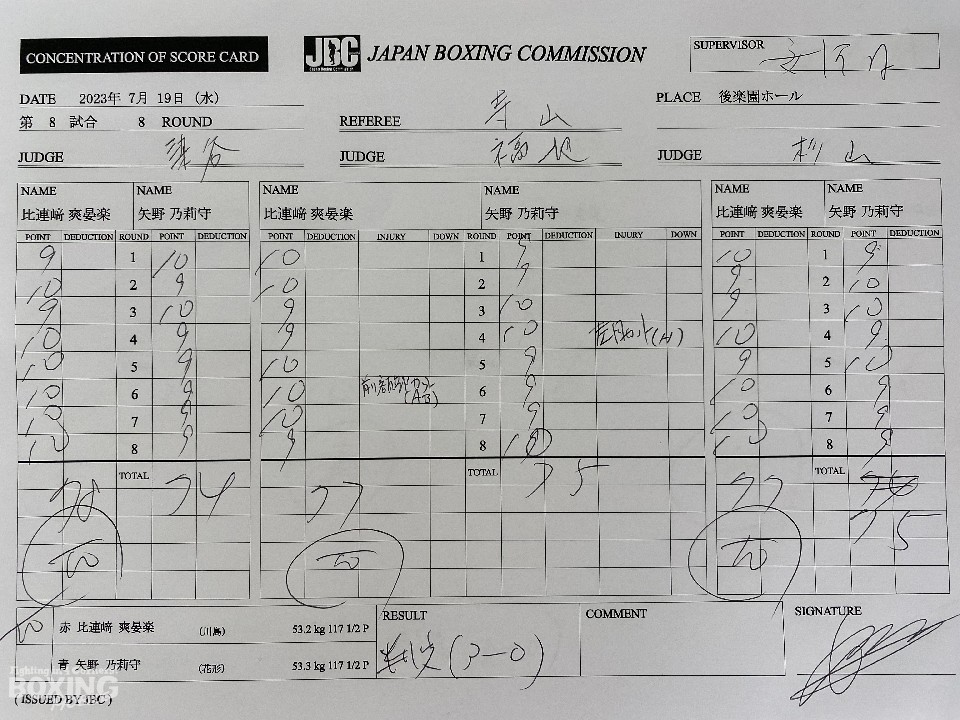 CONCENTRATION OF SCORE CARD
JBC JAPAN BOXING COMMISSION
SUPERVISOR
DATE 2023年 7月 19日 (水)
PLACE 後楽園ホール
第 8 試合 8 ROUND
REFEREE 寺山
JUDGE 染谷
JUDGE 福地
JUDGE 杉山
NAME NAME NAME NAME NAME NAME
比連﨑 爽晏楽 矢野 乃莉守 比連﨑 爽晏楽 矢野 乃莉守 比連﨑 爽晏楽 矢野 乃莉守
POINT DEDUCTION ROUND POINT DEDUCTION POINT DEDUCTION INJURY DOWN ROUND POINT DEDUCTION INJURY DOWN POINT DEDUCTION ROUND POINT DEDUCTION
9 1 10 10 1 9 10 1 9
10 2 9 10 2 9 9 2 10
9 3 10 9 3 10 9 3 10
10 4 9 9 4 10 (A) 10 4 9
10 5 9 10 5 9 9 5 10
10 6 9 10 (AB) 6 9 10 6 9
10 7 9 10 7 9 10 7 9
10 8 9 9 8 10 10 8 9
78 TOTAL 74 77 TOTAL 75 77 TOTAL
75
赤 比連﨑 爽晏楽 (川島) 53.2 kg 117 1/2 P
青 矢野 乃莉守 (花形) 53.3 kg 117 1/2 P
RESULT
判定 (3-0)
COMMENT
SIGNATURE
BOXING
( ISSUED BY JBC )